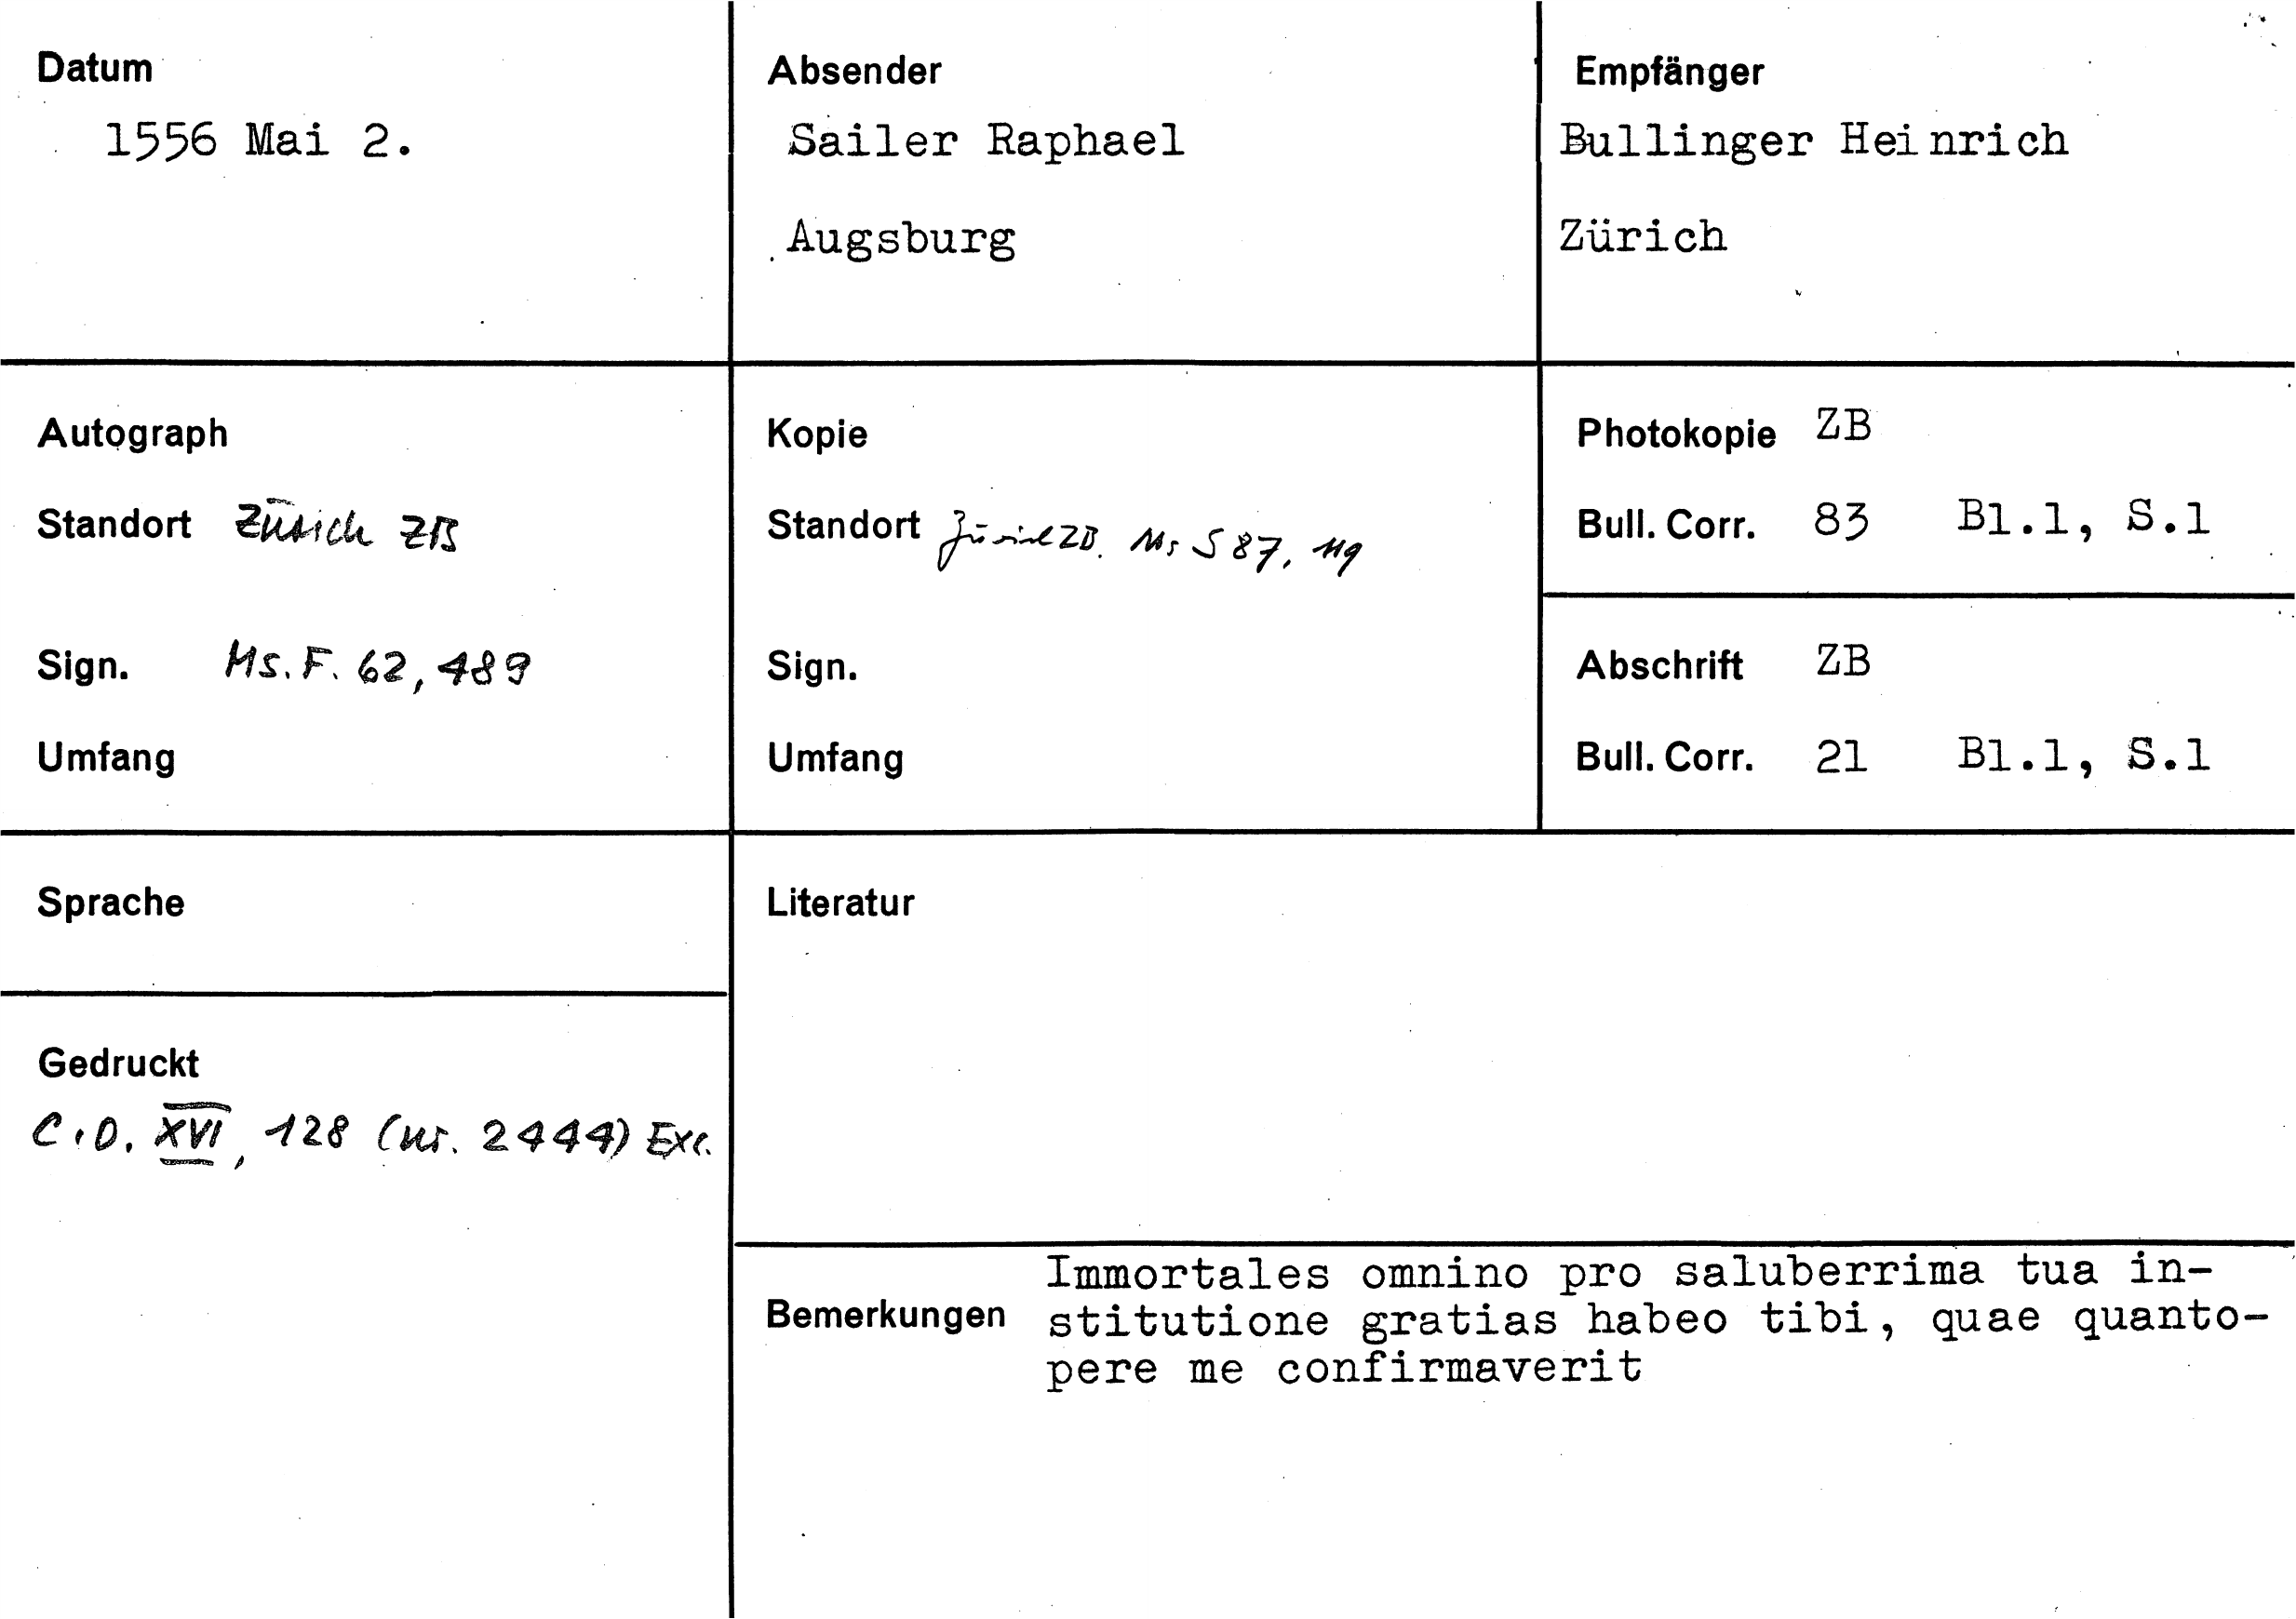 Datum
1556 Mai 2.
Absender
Sailer Raphael
Augsburg
Empfänger
Bullinger Heinrich
Zürich
Autograph
Standort Zürich ZB
Sign. Ms. F. 62, 489
Umfang
Kopie
Standort Zürich ZB. Ms S 87, 119
Sign.
Umfang
Photokopie ZB
Bull. Corr. 83 Bl.1, S.1
Abschrift ZB
Bull. Corr. 21 Bl.1, S.1
Sprache
Gedruckt
C.O. XVI, 128 (nr. 2444) Exc.
Literatur
Bemerkungen
Immortales omnino pro saluberrima tua in-
stitutione gratias habeo tibi, quae quanto-
pere me confirmaverit